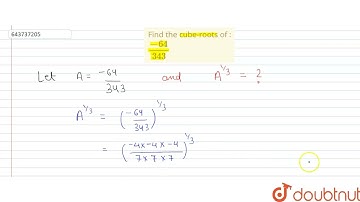 643737205
Find the cube-roots of :
-64
343
Let A = -64/343 and A^1/3 = ?
A^1/3 = (-64/343)^1/3
= (-4x-4x-4/7x7x7)^1/3
doubtnut